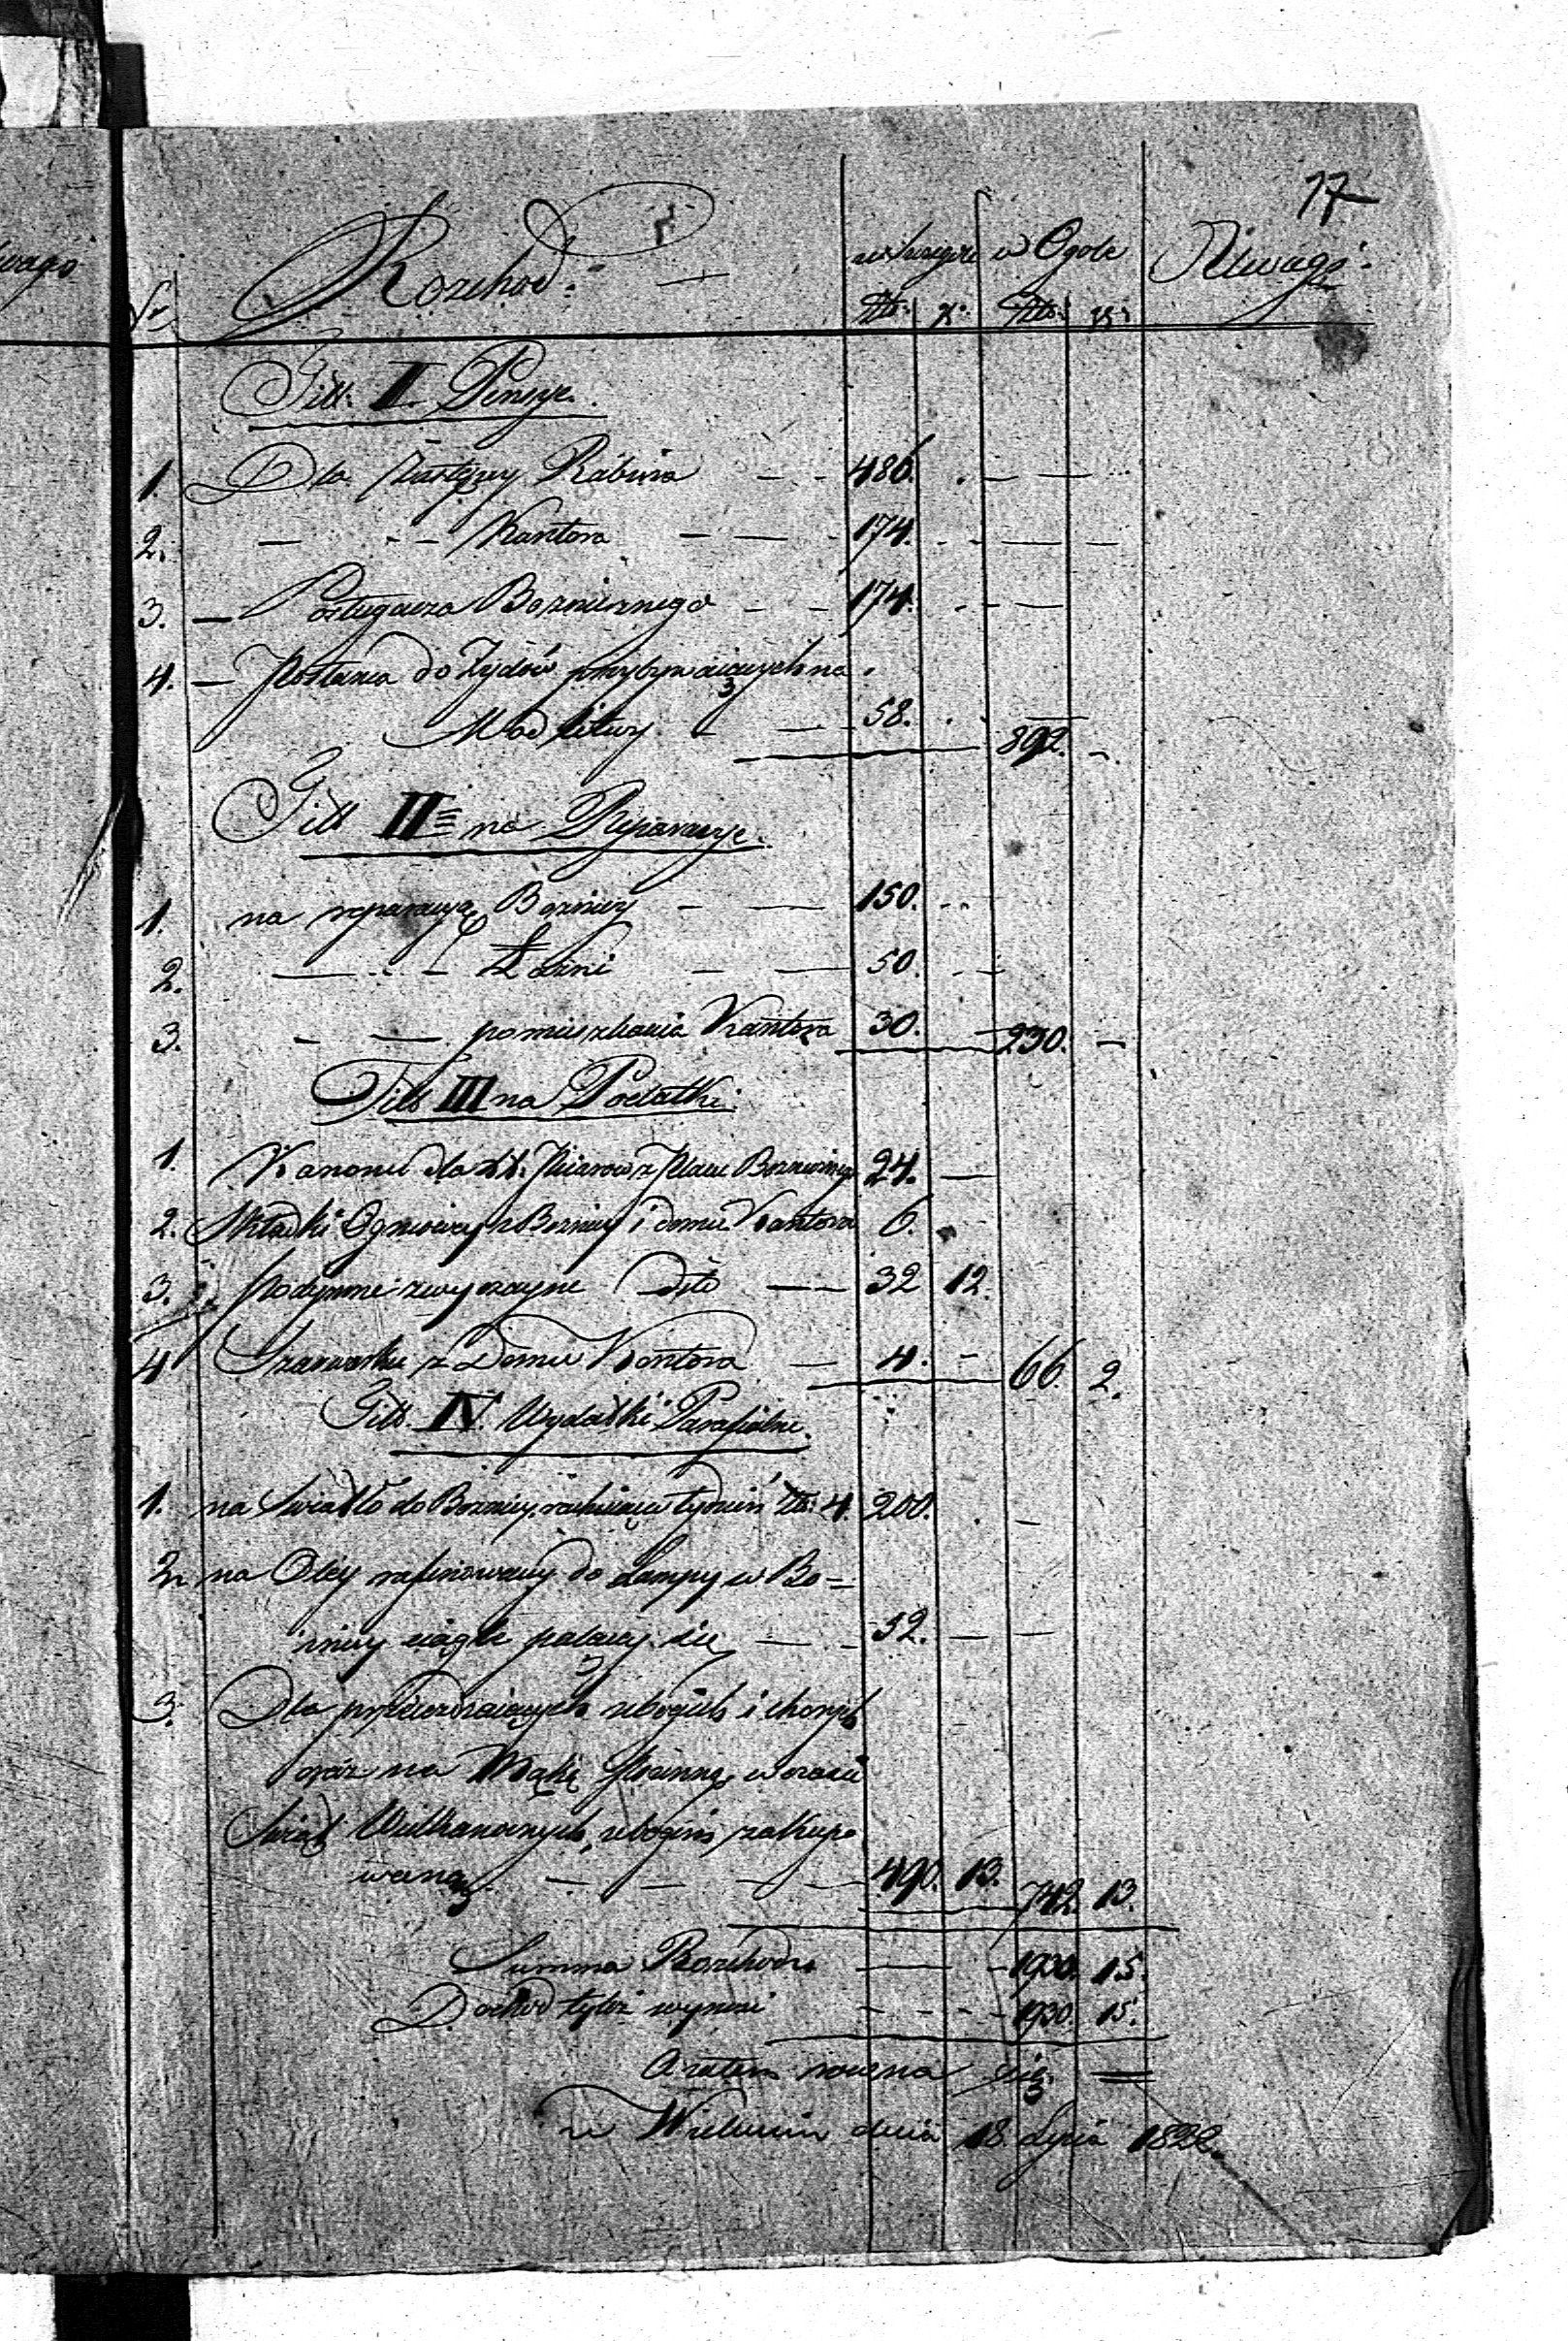 17
Nr Rozchod: w szczególe w Ogole Uwagi.
Złt: gr: Złt: gr:
Titl. I. Pensye.
1. Dla Zastępcy Rabina — - 486. . — —
2. — - - Kantora — — - 174. . - — —
3. — Posługacza Boznicznego - - 174. . - —
4. — Posłańca do Żydów przybywaiących na
Modlitwy. — 58. . . 892. -
Titl II na Reparacye.
1. na reparacyą Boznicy - — 150. . .
2. — - - Łazni - — 50. . -
3. - — pomieszkania Kantora 30. — 230. —
Titl III na Podatki.
1. Kanonu dla XX. Piiarow z Placu Boznicznego 24. —
2. Składki Ogniowey z Boznicy i domu Kantora 6. -
3. Podymne zwyczayne dito — - 32 12.
4 Szarwarku z Domu Kantora — 4. - 66. 2.
Titl. IV. Wydatki Parafialne.
1. na Swiatło do Boznicy rachuiąc w tydzień Złt: 4. 200. . -
2. na Oley rafinowany do Lampy w Bo=
znicy ciągle palącey się — - 52. — —
3. Dla przechodzących ubogich i chorych
oraz na Mąkę w czasie
Swiąt Wielkanocnych, ubogim zakupo
waną — — - — 490. 13. 742. 13.
Summa Rozchodu — - 1930. 15.
Dochod tyleż wynosi - - - - 1930. 15.
A zatem rowna się =
w Wieluniu dnia 18. Lipca 1822.